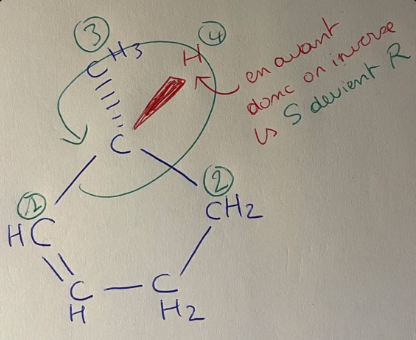 ③ ④
CH3 H
en avant
donc on inverse
↳ S devient R
C
① ②
HC CH2
C C
H H2